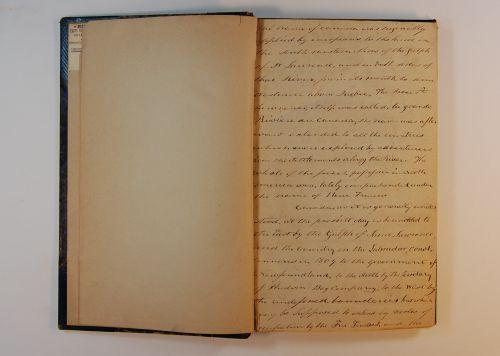 The name of Canada was originally
applied by Europeans to the land on
the South western Shore of the Gulph
of St Lawrence, and on both sides of
that River, from its mouth to some
distance above Quebec. The River St
Lawrence itself was called, la grande
Riviere du Canada, the name was after
ward extended to all the countries
which were explored by adventurers
from the settlements along the River. The
whole of the french possessions in North
America were lately comprehended under
the name of New France
Canada as it is generally under
stood, at the present day is bounded to
the East by the Gulph of Saint Lawrence
and the Country on the Labrador Coast,
annexed in 1809 to the Government of
Newfoundland, to the North by the Territory
of Hudson Bay Company, to the West by
the undefined boundaries
may be supposed to extend by virtue of
by the Fur Traders, and the